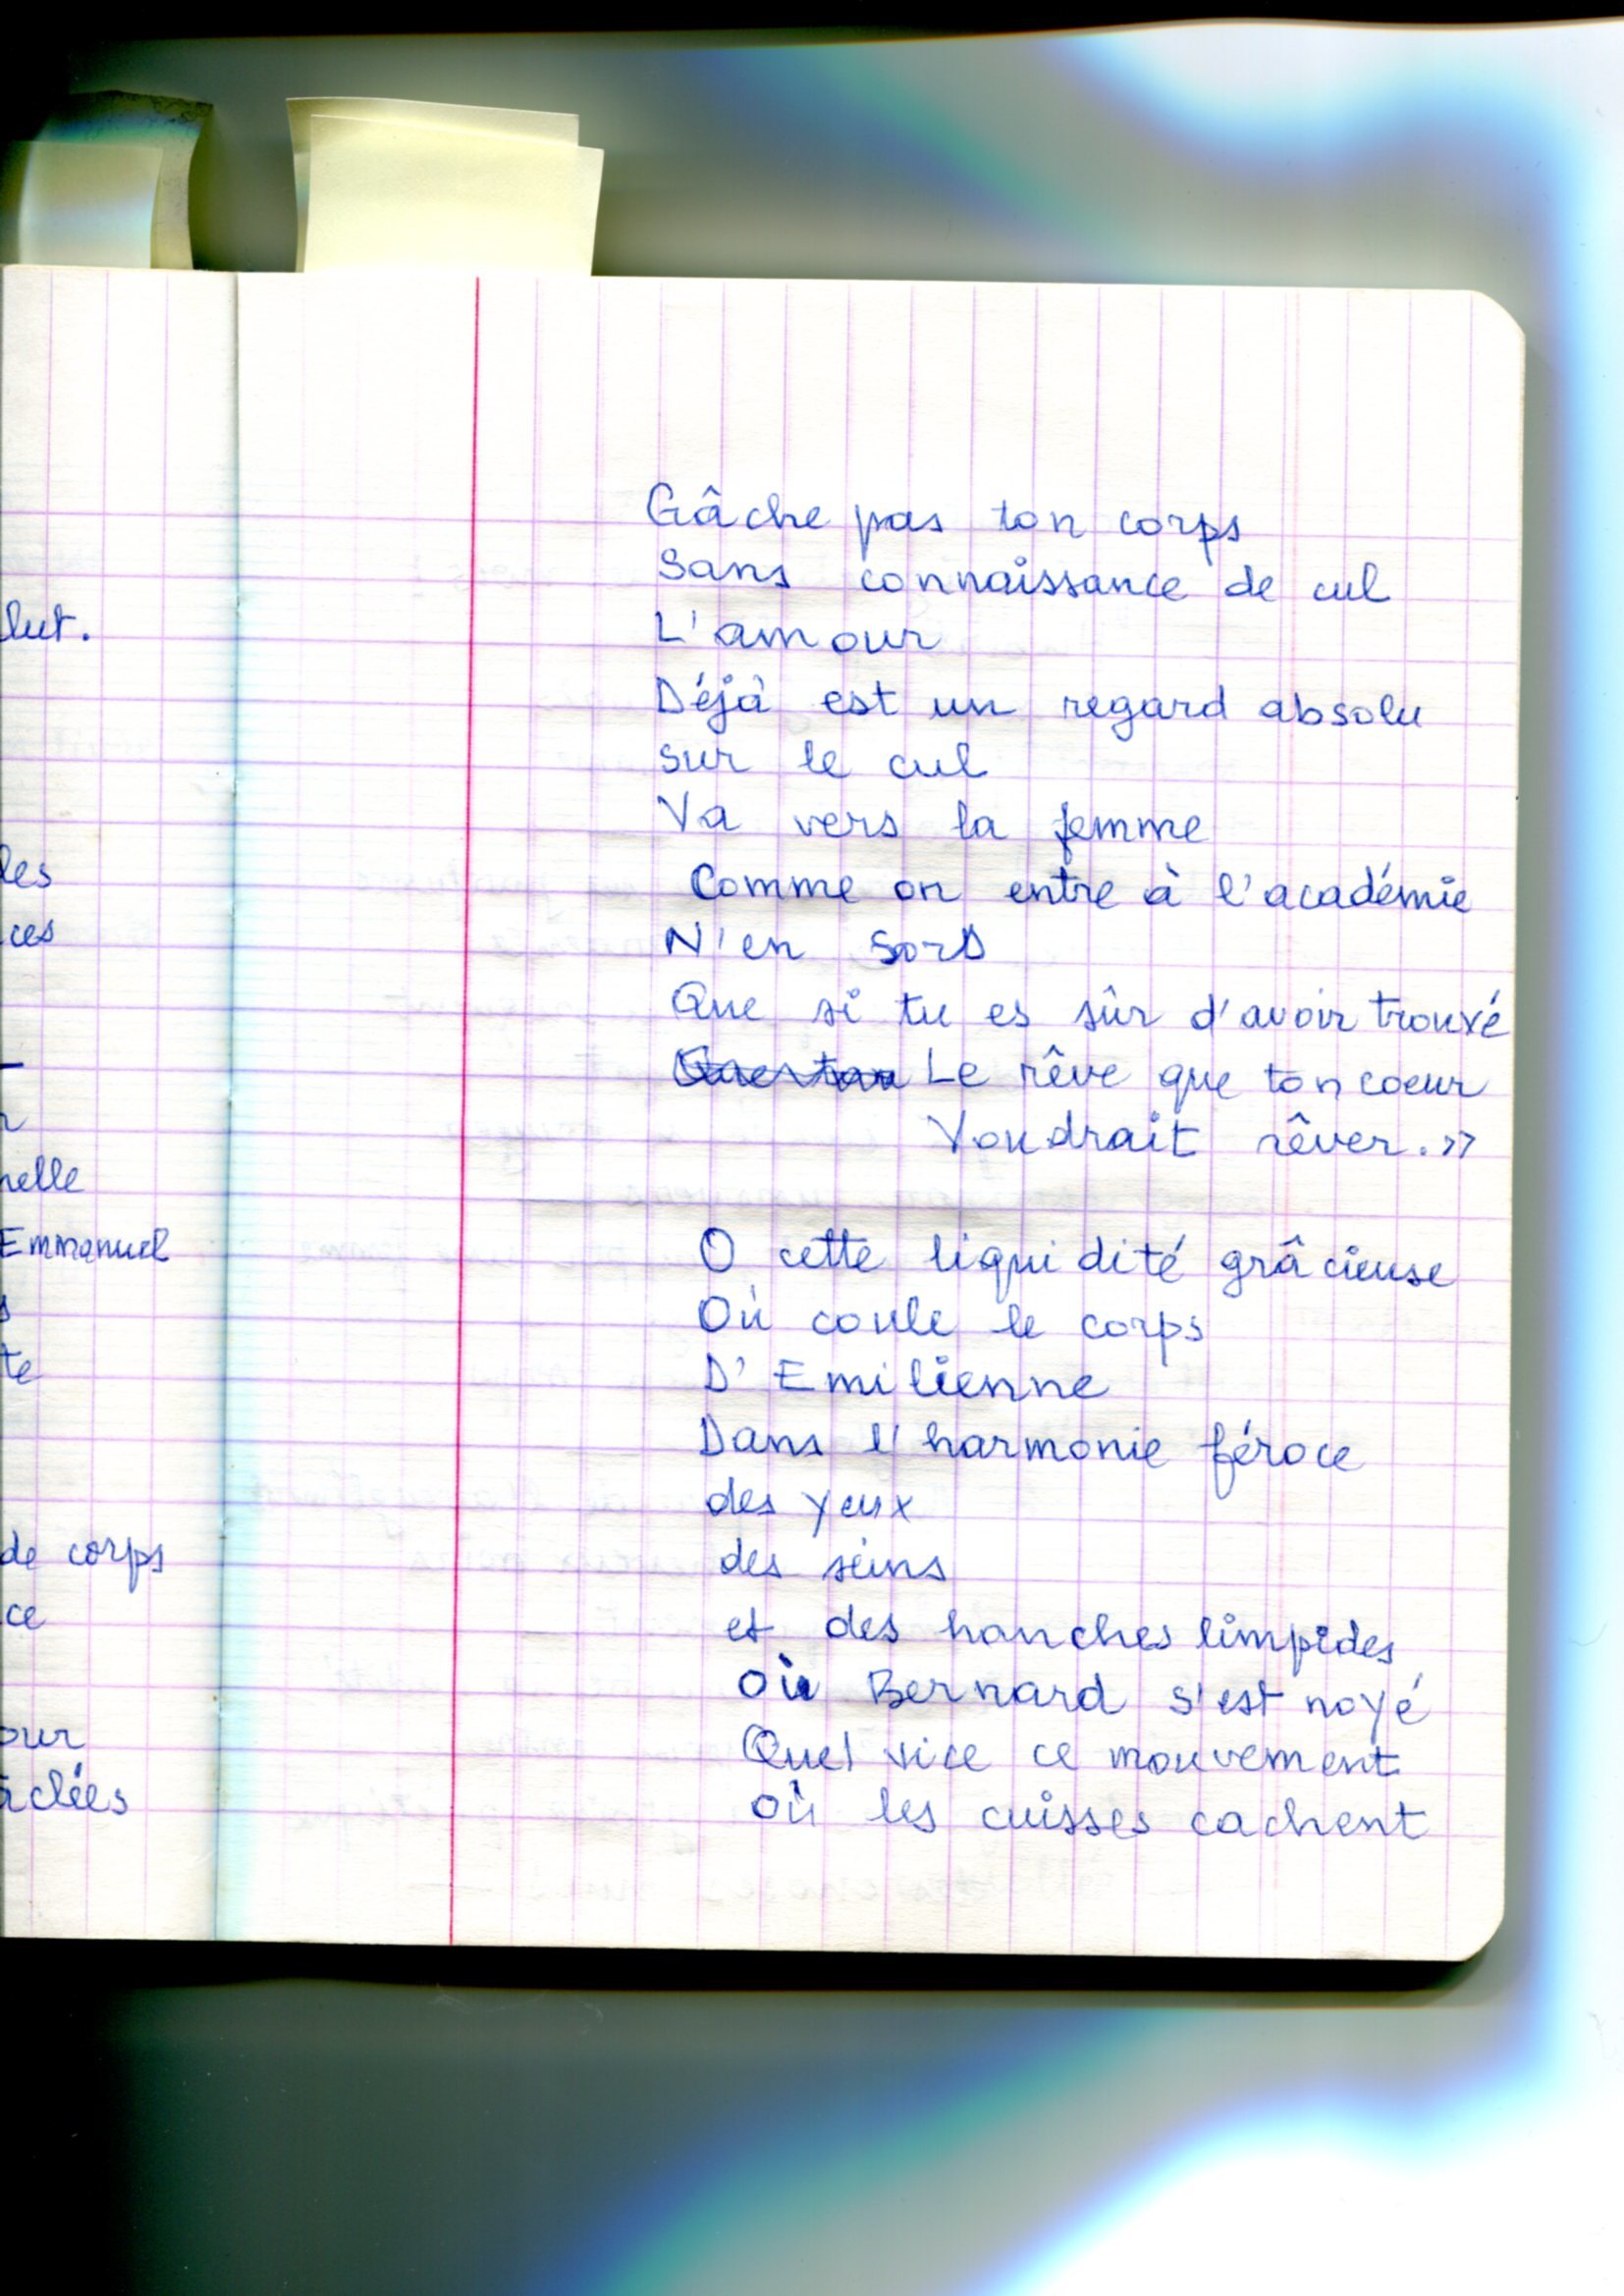 lut.
les
ces
nelle
Emmanuel
s
te
de corps
ce
our
aclées
Gâche pas ton corps
Sans connaissance de cul
L'amour
Déjà est un regard absolu
sur le cul
Va vers la femme
Comme on entre à l'académie
N'en sors
Que si tu es sûr d'avoir trouvé
Le rêve que ton coeur
Voudrait rêver.»
O cette liquidité grâcieuse
Où coule le corps
D'Emilienne
Dans l'harmonie féroce
des yeux
des seins
et des hanches limpides
où Bernard s'est noyé
Quel vice ce mouvement
où les cuisses cachent